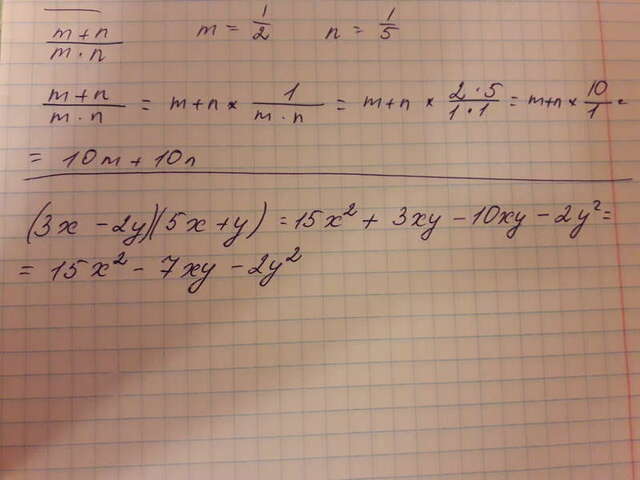 m+n/m·n    m = 1/2    n = 1/5
m+n/m·n = m+n × 1/m·n = m+n × 2·5/1·1 = m+n × 10/1 =
= 10m + 10n
(3x - 2y)(5x + y) = 15x² + 3xy - 10xy - 2y² =
= 15x² - 7xy - 2y²